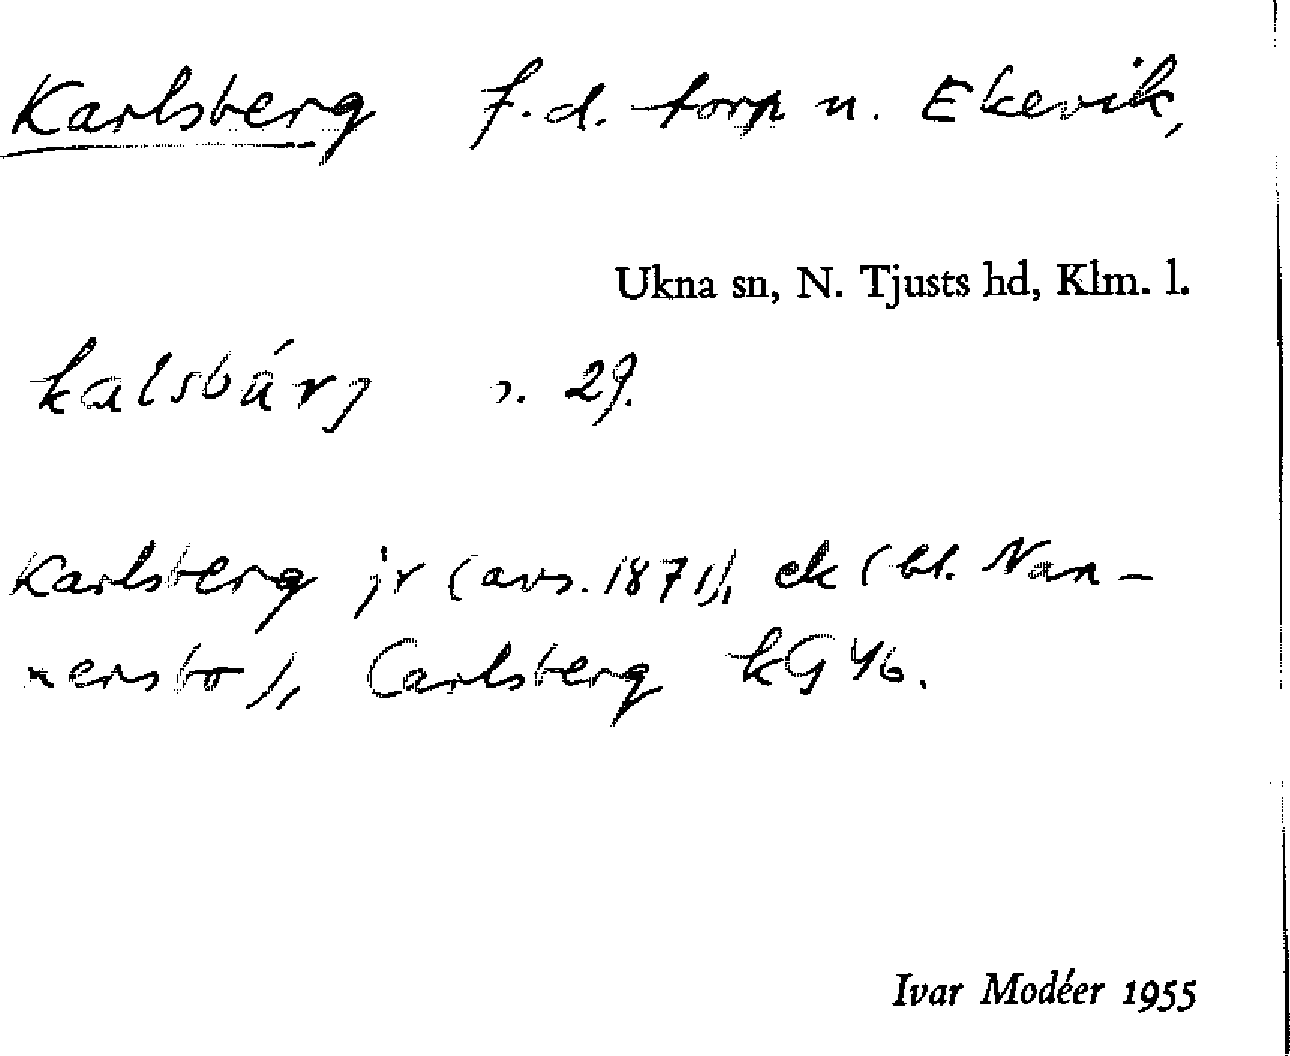 Karlsberg f.d. torp u. Ekevik,
Ukna sn, N. Tjusts hd, Klm. l.
kalsbárj s. 29.
Karlsberg jr (avs. 1871), ek (bl. Nan-
nersbo), Carlsberg kG 46.
Ivar Modéer 1955